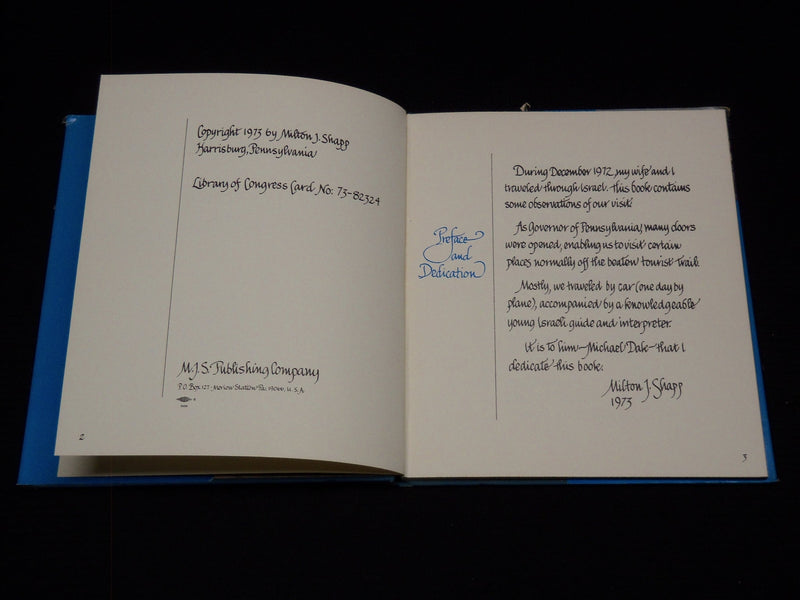 Copyright 1973 by Milton J. Shapp
Harrisburg, Pennsylvania
Library of Congress Card No: 73-82324
M.J.S. Publishing Company
P.O. Box 127 - Merion Station Pa. 19066, U.S.A.
2
Preface
and
Dedication
During December 1972, my wife and I
traveled through Israel. This book contains
some observations of our visit.
As Governor of Pennsylvania, many doors
were opened, enabling us to visit certain
places normally off the beaten tourist trail.
Mostly, we traveled by car (one day by
plane), accompanied by a knowledgeable
young Israeli guide and interpreter.
It is to him—Michael Dak—that I
dedicate this book.
Milton J. Shapp
1973
3